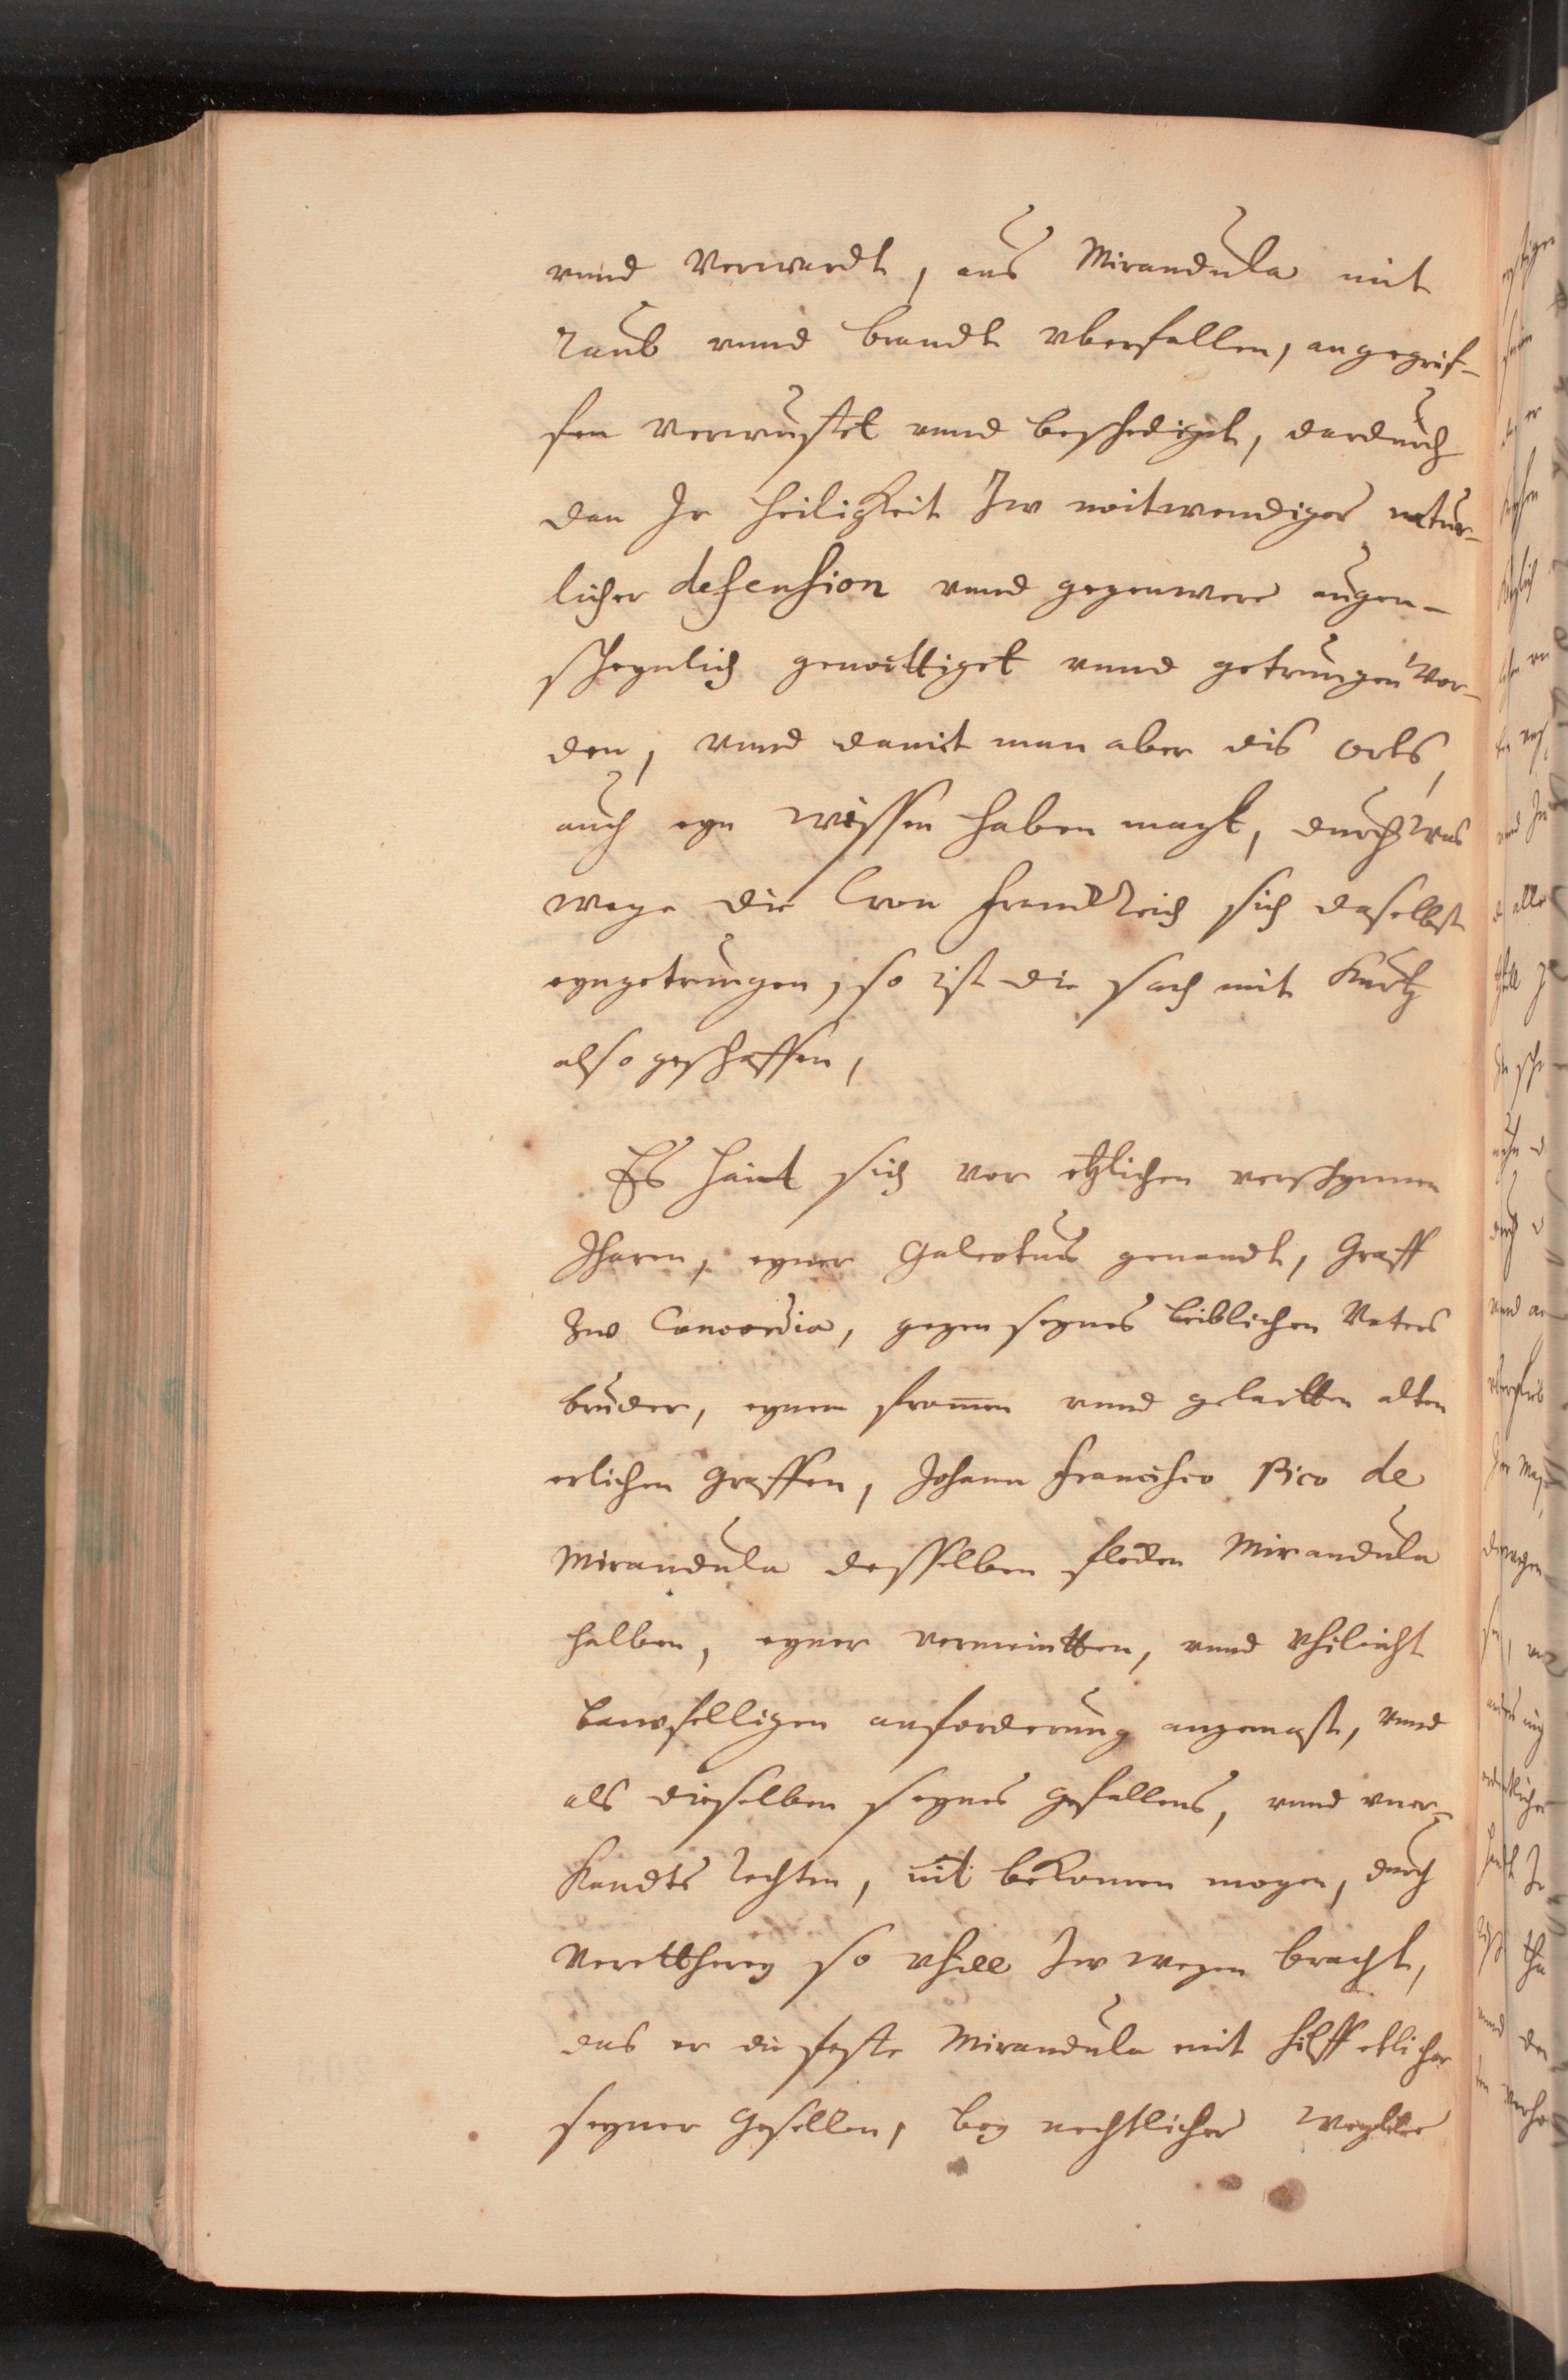 vnnd Verwardt, aus Mirandula mit
raub vnnd brandt vberfallen, angegrif-
fen verwustet vnnd beschediget, dardurch
dan Jr heiligkeit Zw noitwendiger natur-
licher defension vnnd gegenwere augen-
scheynlich genoittiget vnnd getrungen wor-
den, vnnd damit man aber dis orts,
auch eyn wissen haben magk, durch was
wege die Cron Franckreich sich daselbst
eyngetrungen, so ist die sach mit kurtz
also geschaffen,
Es hait sich vor etzlichen verschynnen
Jharen, eyner Galeotus genandt, Graff
Zw Concordia, gegen seynes leiblichen Vaters
bruder, eynem fromen vnnd gelartten alten
erlichen Graffen, Johann Francisco Pico de
Mirandula desselben flecken Mirandula
halben, eyner vermeintten, vnnd vhilicht
bawfelligen anforderung angemast, vnnd
als dieselben seynes gefallens, vnnd vner-
kandts rechten, nit bekomen mogen, durch
Verettherey so vhill Zw wegen bracht,
das er die feste Mirandula mit hilff etlicher
seyner Gesellen, bey nechtlicher weyle